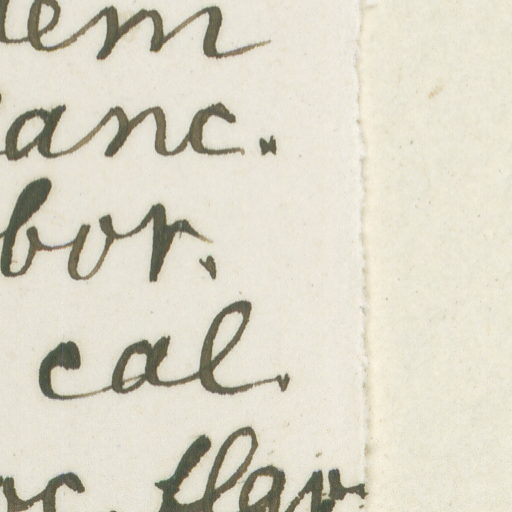 dem
ianc.
bor.
cal.
oc. flav.